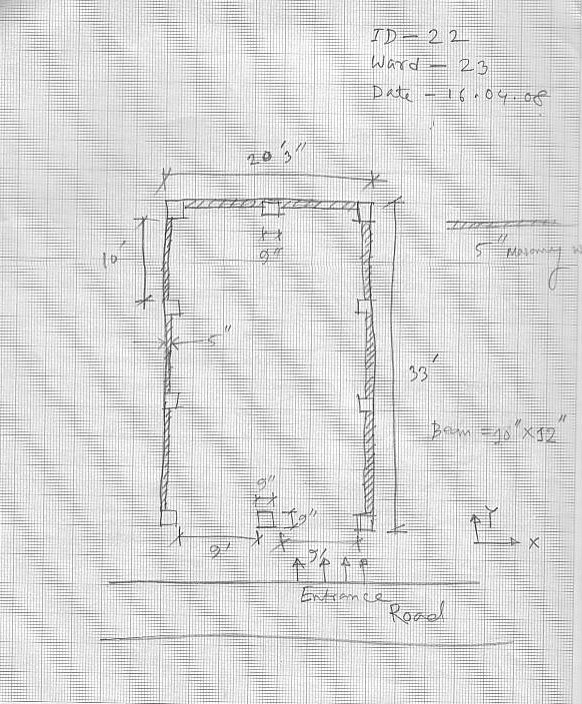 ID - 22
Ward - 23
Date - 16.04.08
20'3"
9"
10'
5" Masonry w
5"
33'
Beam = 10" x 12"
9"
9"
9'
9'
Y
X
Entrance
Road